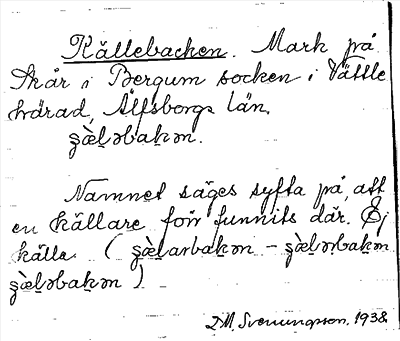 Källebacken. Mark på
Skår i Bergum socken i Vättle
härad, Älfsborgs län.
s̨æ̀l̠əbak̠ən.
Namnet säges syfta på, att
en källare förr funnits där. Ej
källa. (s̨æ̀l̠arbak̠ən – s̨æ̀l̠ərbak̠ən
s̨æ̀l̠əbak̠ən)
D.M. Svenungsson. 1938.